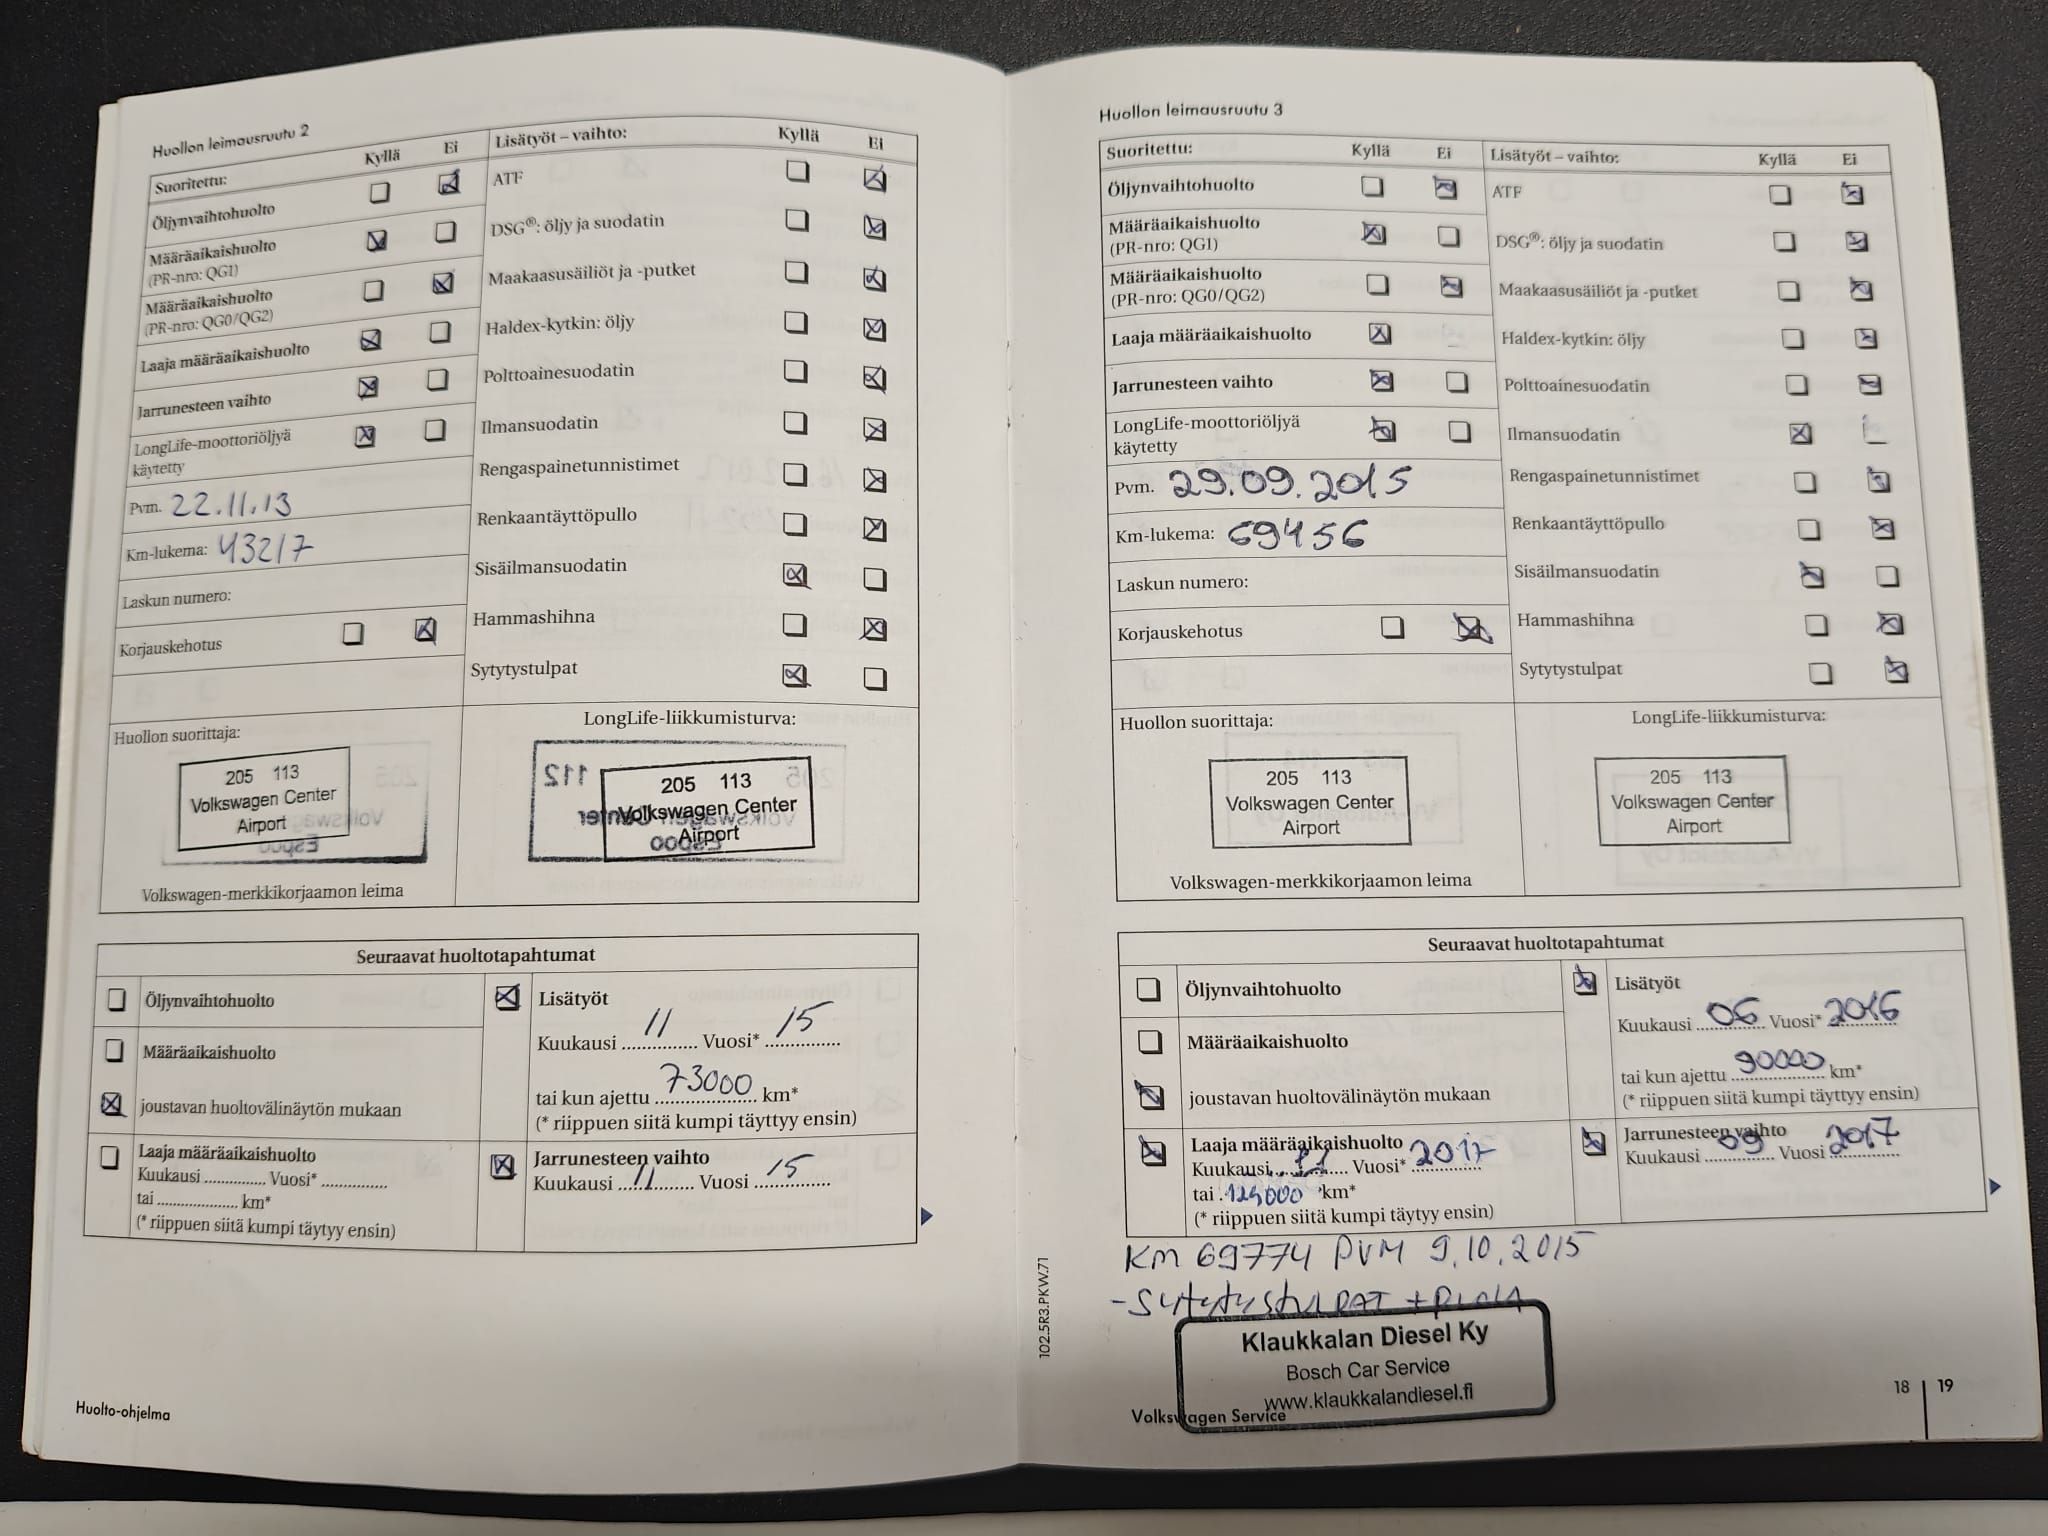 Huollon leimausruutu 2
Suoritettu: Kyllä Ei
Öljynvaihtohuolto
Määräaikaishuolto
(PR-nro: QG1)
Määräaikaishuolto
(PR-nro: QG0/QG2)
Laaja määräaikaishuolto
Jarrunesteen vaihto
LongLife-moottoriöljyä
käytetty
Pvm. 22.11.13
Km-lukema: 43217
Laskun numero:
Korjauskehotus
Lisätyöt – vaihto: Kyllä Ei
ATF
DSG®: öljy ja suodatin
Maakaasusäiliöt ja -putket
Haldex-kytkin: öljy
Polttoainesuodatin
Ilmansuodatin
Rengaspainetunnistimet
Renkaantäyttöpullo
Sisäilmansuodatin
Hammashihna
Sytytystulpat
Huollon suorittaja:
205 113
Volkswagen Center
Airport
Volkswagen-merkkikorjaamon leima
LongLife-liikkumisturva:
205 113
Volkswagen Center
Airport
Seuraavat huoltotapahtumat
Öljynvaihtohuolto
Määräaikaishuolto
joustavan huoltovälinäytön mukaan
Laaja määräaikaishuolto
Kuukausi ............... Vuosi* ................
tai .................... km*
(* riippuen siitä kumpi täytyy ensin)
Lisätyöt
Kuukausi 11 Vuosi* 15
tai kun ajettu 73000 km*
(* riippuen siitä kumpi täyttyy ensin)
Jarrunesteen vaihto
Kuukausi 11 Vuosi 15
Huolto-ohjelma
Huollon leimausruutu 3
Suoritettu: Kyllä Ei
Öljynvaihtohuolto
Määräaikaishuolto
(PR-nro: QG1)
Määräaikaishuolto
(PR-nro: QG0/QG2)
Laaja määräaikaishuolto
Jarrunesteen vaihto
LongLife-moottoriöljyä
käytetty
Pvm. 29.09.2015
Km-lukema: 69456
Laskun numero:
Korjauskehotus
Lisätyöt – vaihto: Kyllä Ei
ATF
DSG®: öljy ja suodatin
Maakaasusäiliöt ja -putket
Haldex-kytkin: öljy
Polttoainesuodatin
Ilmansuodatin
Rengaspainetunnistimet
Renkaantäyttöpullo
Sisäilmansuodatin
Hammashihna
Sytytystulpat
Huollon suorittaja:
205 113
Volkswagen Center
Airport
Volkswagen-merkkikorjaamon leima
LongLife-liikkumisturva:
205 113
Volkswagen Center
Airport
Seuraavat huoltotapahtumat
Öljynvaihtohuolto
Määräaikaishuolto
joustavan huoltovälinäytön mukaan
Laaja määräaikaishuolto
Kuukausi Vuosi* 2017
tai km*
(* riippuen siitä kumpi täytyy ensin)
Lisätyöt
Kuukausi 06 Vuosi* 2016
tai kun ajettu 90000 km*
(* riippuen siitä kumpi täyttyy ensin)
Jarrunesteen vaihto
Kuukausi 09 Vuosi 2017
KM 69774 PVM 9.10.2015
- Sytytystulpat +
Klaukkalan Diesel Ky
Bosch Car Service
www.klaukkalandiesel.fi
Volkswagen Service
102.5R3.PKW.71
18 19